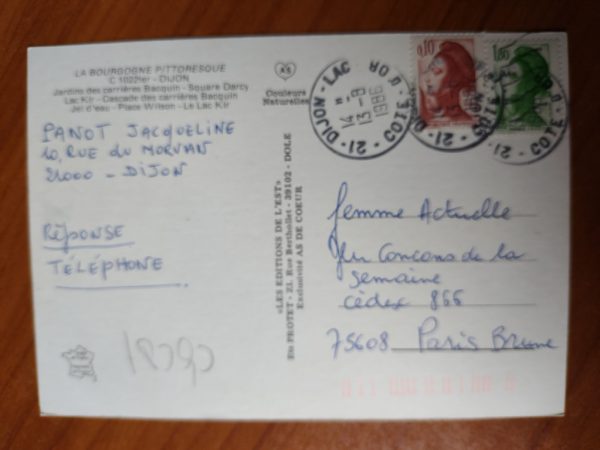 LA BOURGOGNE PITTORESQUE
C 1022ter - DIJON
Jardins des carrières Bacquin - Square Darcy
Lac Kir - Cascade des carrières Bacquin
Jet d'eau - Place Wilson - Le Lac Kir
AS
Couleurs
Naturelles
PANOT JACQUELINE
10, RUE du MORVAN
21000 - DIJON
RÉPONSE
TÉLÉPHONE
«LES EDITIONS DE L'EST»
Ets PROTET - 21, Rue Berthollet - 39102 - DOLE
Exclusivité AS DE COEUR
0,10
1,80
21 - DIJON - LAC
CÔTE D'OR
14
13-9
1986
21 - CÔTE
femme Actuelle
Jeu Concours de la
semaine
cédex 866
75608 Paris Brune